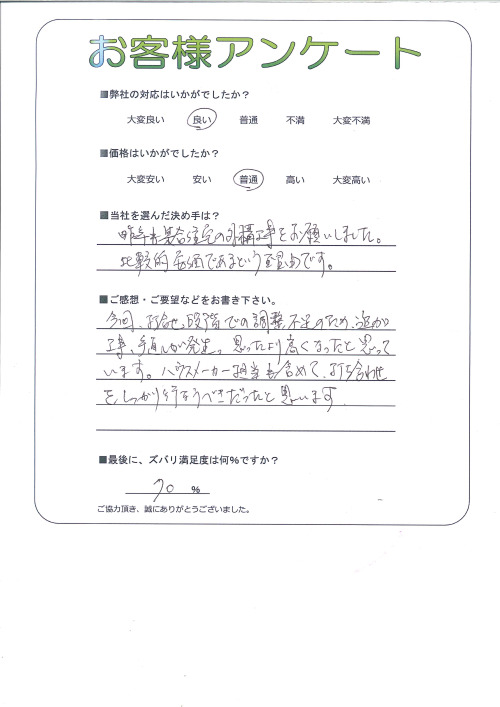 お客様アンケート
■弊社の対応はいかがでしたか？
大変良い 良い 普通 不満 大変不満
■価格はいかがでしたか？
大変安い 安い 普通 高い 大変高い
■当社を選んだ決め手は？
昨年も集合住宅の外構工事をお願いしました。
比較的安価であるという理由です。
■ご感想・ご要望などをお書き下さい。
今回、打合せ段階での調整不足のため、追加
工事、手直しが発生。思ったより高くなったと思って
います。ハウスメーカー担当も含めて、打ち合わせ
をしっかり行なうべきだったと思います
■最後に、ズバリ満足度は何％ですか？
70 ％
ご協力頂き、誠にありがとうございました。